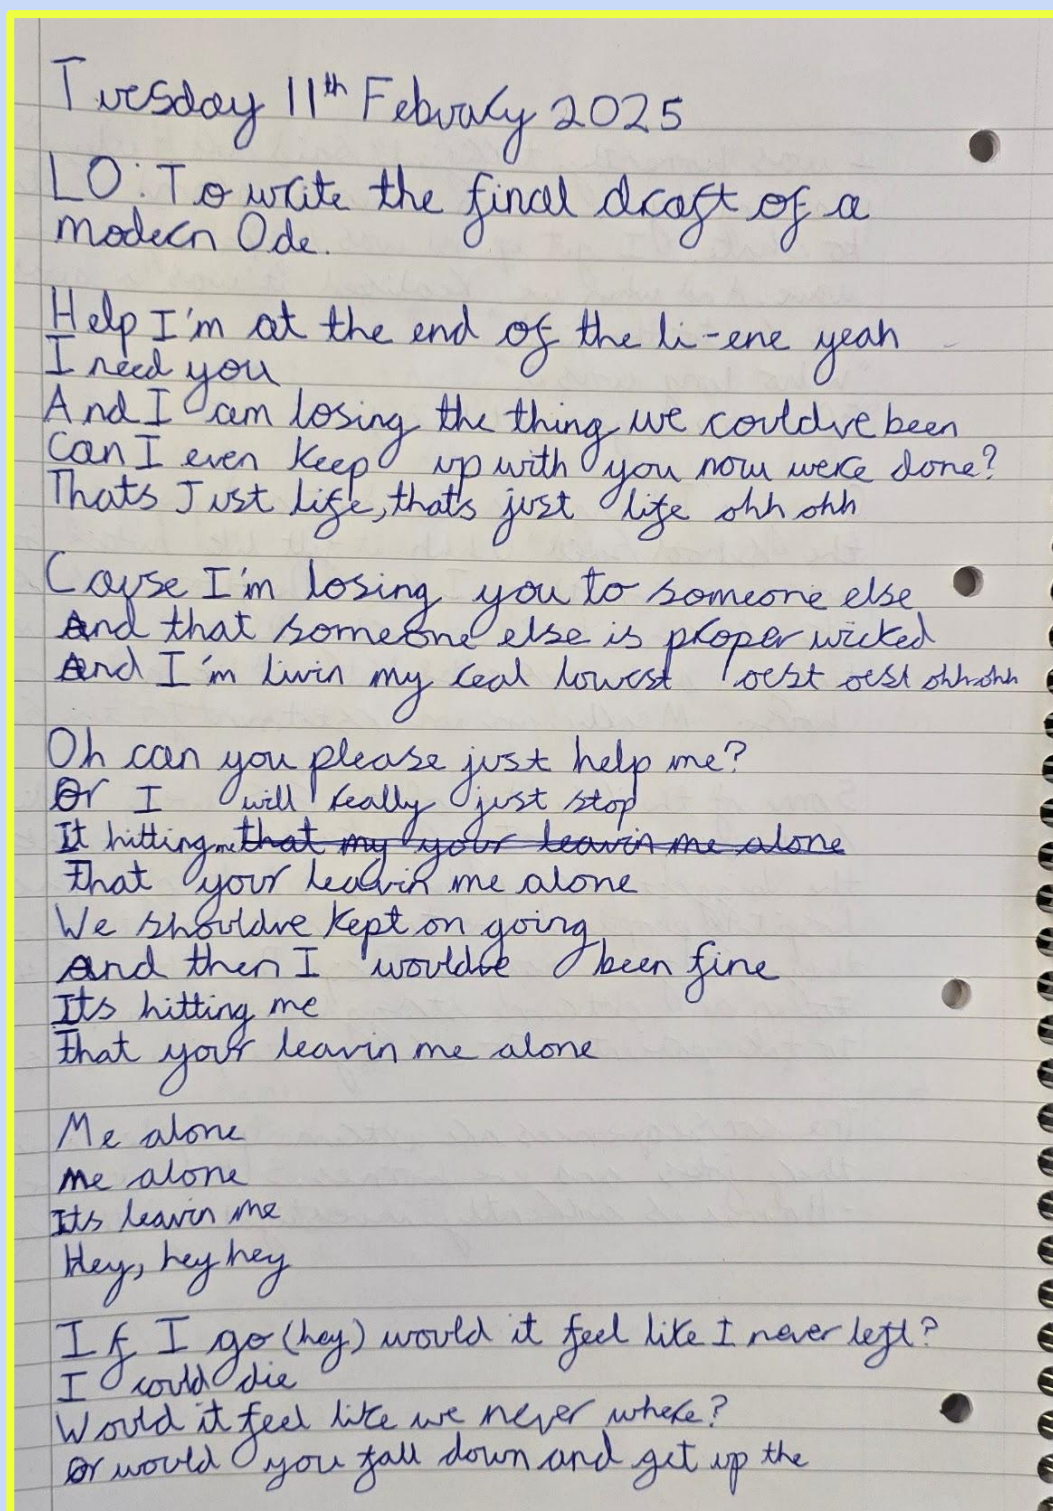 Tuesday 11th Febuary 2025
LO: To write the final draft of a
modern Ode.
Help I'm at the end of the li-ene yeah
I need you
And I am losing the thing we couldve been
Can I even keep up with you now were done?
Thats Just life, thats just life ohh ohh
Cause I'm losing you to someone else
And that someone else is proper wicked
And I'm livin my real lowest oest oest ohh ohh
Oh can you please just help me?
Or I will really just stop
It hitting me that my your leavin me alone
That your leavin me alone
We shouldve kept on going
And then I wouldve been fine
Its hitting me
That your leavin me alone
Me alone
Me alone
Its leavin me
Hey, hey hey
If I go (hey) would it feel like I never left?
I could die
Would it feel like we never where?
Or would you fall down and get up the